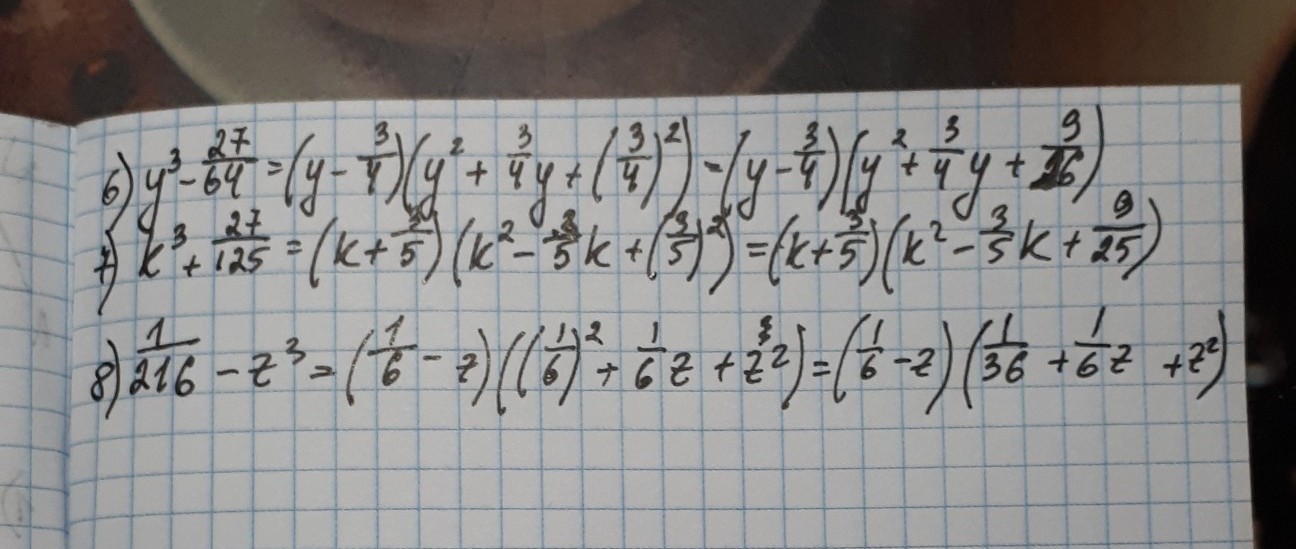 6) y³ - 27/64 = (y - 3/4)(y² + 3/4 y + (3/4)²) - (y - 3/4)(y² + 3/4 y + 9/16)
7) k³ + 27/125 = (k + 3/5)(k² - 3/5 k + (3/5)²) = (k + 3/5)(k² - 3/5 k + 9/25)
8) 1/216 - z³ = (1/6 - z)((1/6)² + 1/6 z + z²) = (1/6 - z)(1/36 + 1/6 z + z²)